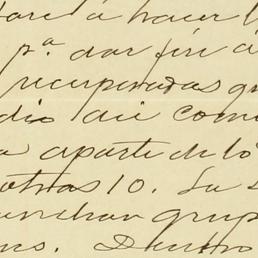 á hacer l
pª dar fin á
recuperadas qu
dio asi com
a aparte de lo
otras 10. La s
grup
ns. Dentro